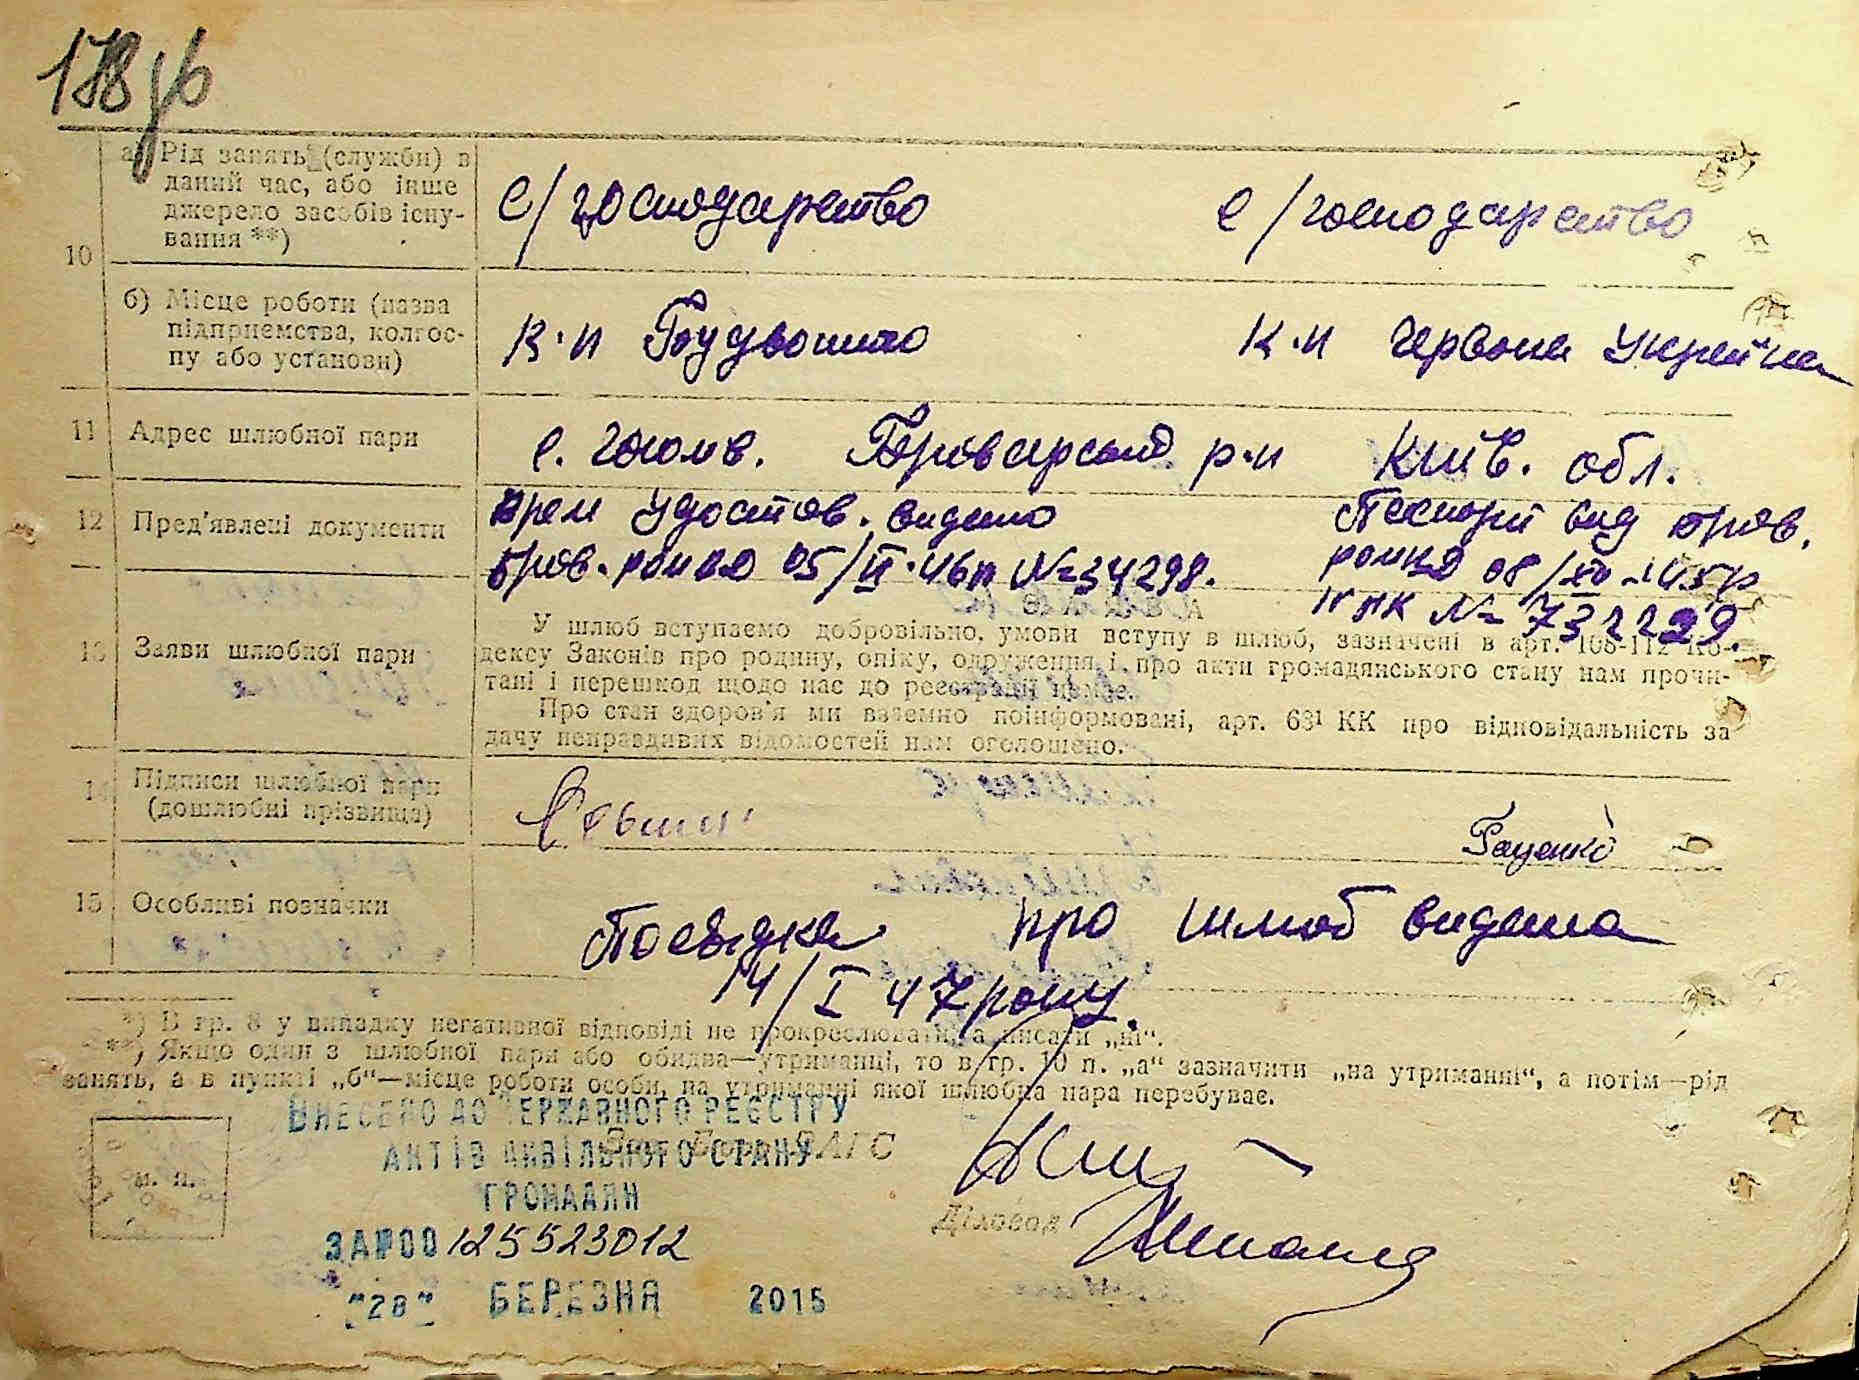 178 зв
10
а) Рід занять (служби) в
даний час, або інше
джерело засобів існу-
вання **)
с/господарство с/господарство
б) Місце роботи (назва
підприємства, колгос-
пу або установи)
к-п к-п Червона Україна
11 Адрес шлюбної пари
с. Гоголів. Броварський р-н Київ. обл.
12 Пред'явлені документи
врем удостов. видано Паспорт вид Бров.
Бров. 05/ІІ-46р №34298. 08/ХІІ-45р
№ 732229
13 Заяви шлюбної пари
У шлюб вступаємо добровільно, умови вступу в шлюб, зазначені в арт. 108-112 Ко-
дексу Законів про родину, опіку, одруження і про акти громадянського стану нам прочи-
тані і перешкод щодо нас до реєстрації немає.
Про стан здоров'я ми взаємно поінформовані, арт. 63¹ КК про відповідальність за
дачу неправдивих відомостей нам оголошено.
14 Підписи шлюбної пари
(дошлюбні прізвища)
Гаценко
15 Особливі позначки
Посвідка про шлюб видана
14/І 47 року.
*) В гр. 8 у випадку негативної відповіді не прокреслювати, а писати „ні“.
**) Якщо один з шлюбної пари або обидва—утриманці, то в гр. 10 п. „а“ зазначити „на утриманні“, а потім—рід
занять, а в пункті „б“—місце роботи особи, на утриманні якої шлюбна пара перебуває.
ВНЕСЕНО ДО ДЕРЖАВНОГО РЕЄСТРУ
АКТІВ ЦИВІЛЬНОГО СТАНУ
ЗАГС
м. п.
ГРОМАДЯН
Діловод
ЗА №00125523012
"28" БЕРЕЗНЯ 2015